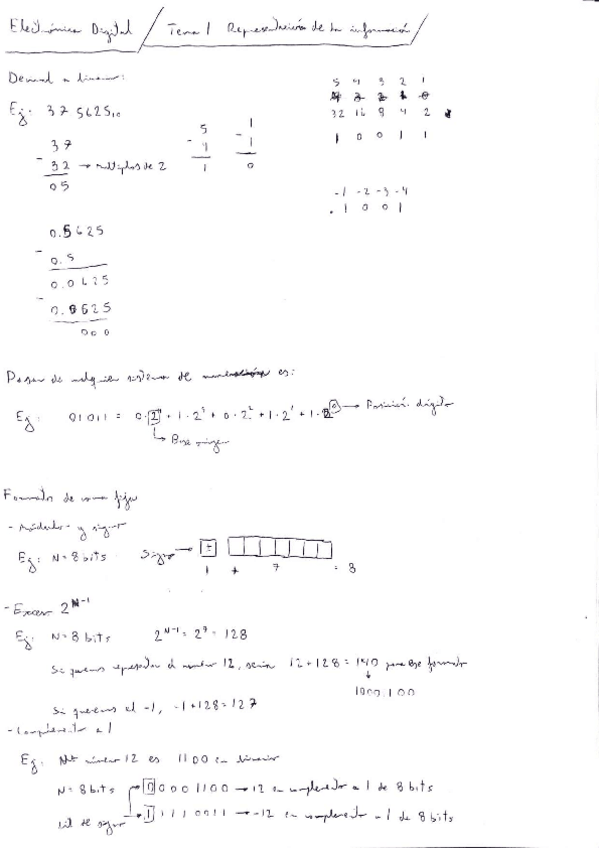 Electrónica Digital / Tema 1 Representación de la información
Decimal a binario:
Ej: 37 5625₁₀
37
- 32 → múltiplos de 2
05
5
- 4
1
1
- 1
0
5 4 3 2 1
32 16 8 4 2
1 0 0 1 1
-1 -2 -3 -4
. 1 0 0 1
0.5625
- 0.5
0.0625
- 0.0625
000
Pasar de cualquier sistema de es:
Ej: 01011 = 0·2⁴ + 1·2³ + 0·2² + 1·2¹ + 1·2⁰ → Posición dígito
↳ Base origen
Formatos de coma fija
- Módulo y signo
Ej: N = 8 bits Signo → ±
1 + 7 = 8
- Exceso 2^N-1
Ej: N = 8 bits 2^N-1 = 2⁷ = 128
Si queremos representar el número 12, sería 12 + 128 = 140 para ese formato
↓
1000.100
Si queremos el -1, -1 + 128 = 127
- Complemento a 1
Ej: número 12 es 1100 en binario
N = 8 bits 0 0 0 0 1 1 0 0 → 12 en complemento a 1 de 8 bits
bit de signo → 1 1 1 1 0 0 1 1 → -12 en complemento a 1 de 8 bits